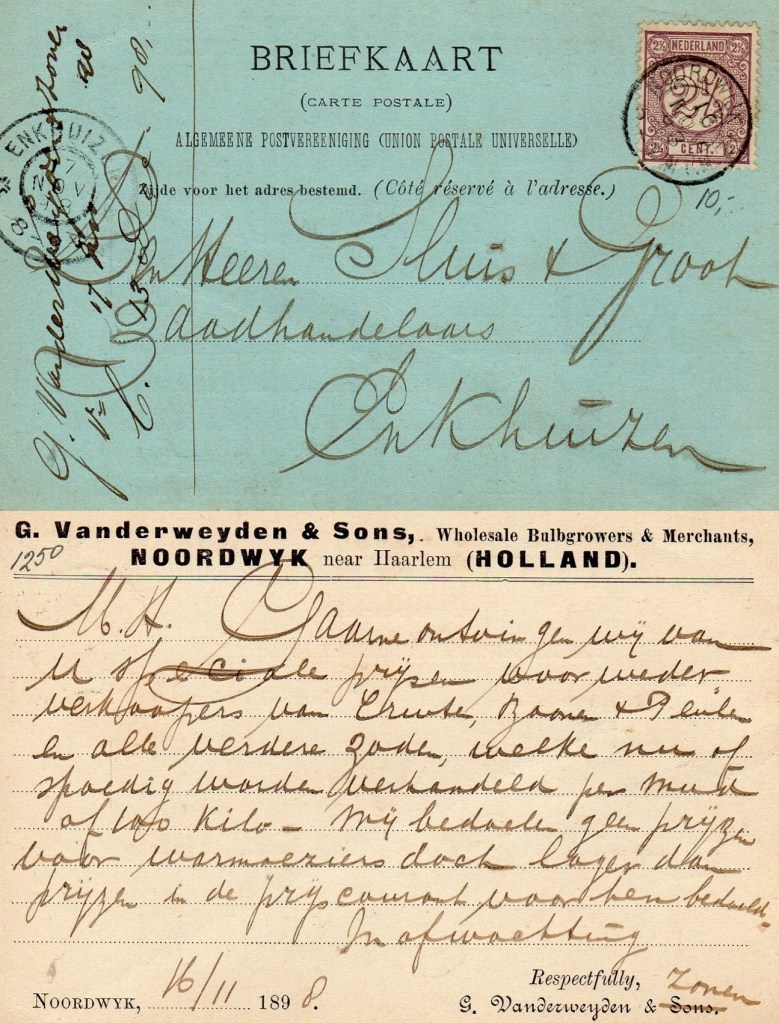 BRIEFKAART
(CARTE POSTALE)
ALGEMEENE POSTVEREENIGING (UNION POSTALE UNIVERSELLE)
Zijde voor het adres bestemd. (Côté réservé à l'adresse.)
2½ NEDERLAND 2½
2½ CENT. 2½
NOORDWIJK
ENKHUIZEN
NOV
10,-
G. Vanderweyden Zonen
17 Nov 98,-
Den Heeren Sluis & Groot
Zaadhandelaars
Enkhuizen
G. Vanderweyden & Sons, Wholesale Bulbgrowers & Merchants,
1250
NOORDWYK near Haarlem (HOLLAND).
M. H. Gaarne ontvingen wij van
U speciale prijzen voor weder
verkoopers van Erwten, Boonen & Peulen
en alle verdere Zaden, welke nu of
spoedig worden verhandeld per mud
of 100 Kilo - Wij bedoelen geen prijzen
voor warmoeziers doch lager dan
prijzen in de prijscourant voor hen bedoeld -
In afwachting
Respectfully,
Zonen
NOORDWYK, 16/11 1898. G. Vanderweyden & Sons.